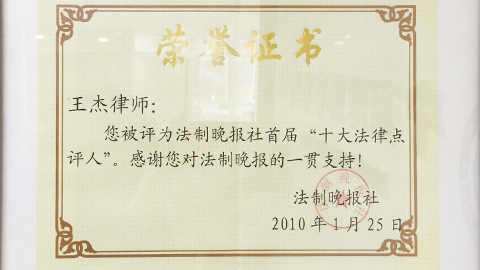 荣誉证书
王杰律师:
您被评为法制晚报社首届“十大法律点
评人”。感谢您对法制晚报的一贯支持!
法制晚报社
2010年1月25日